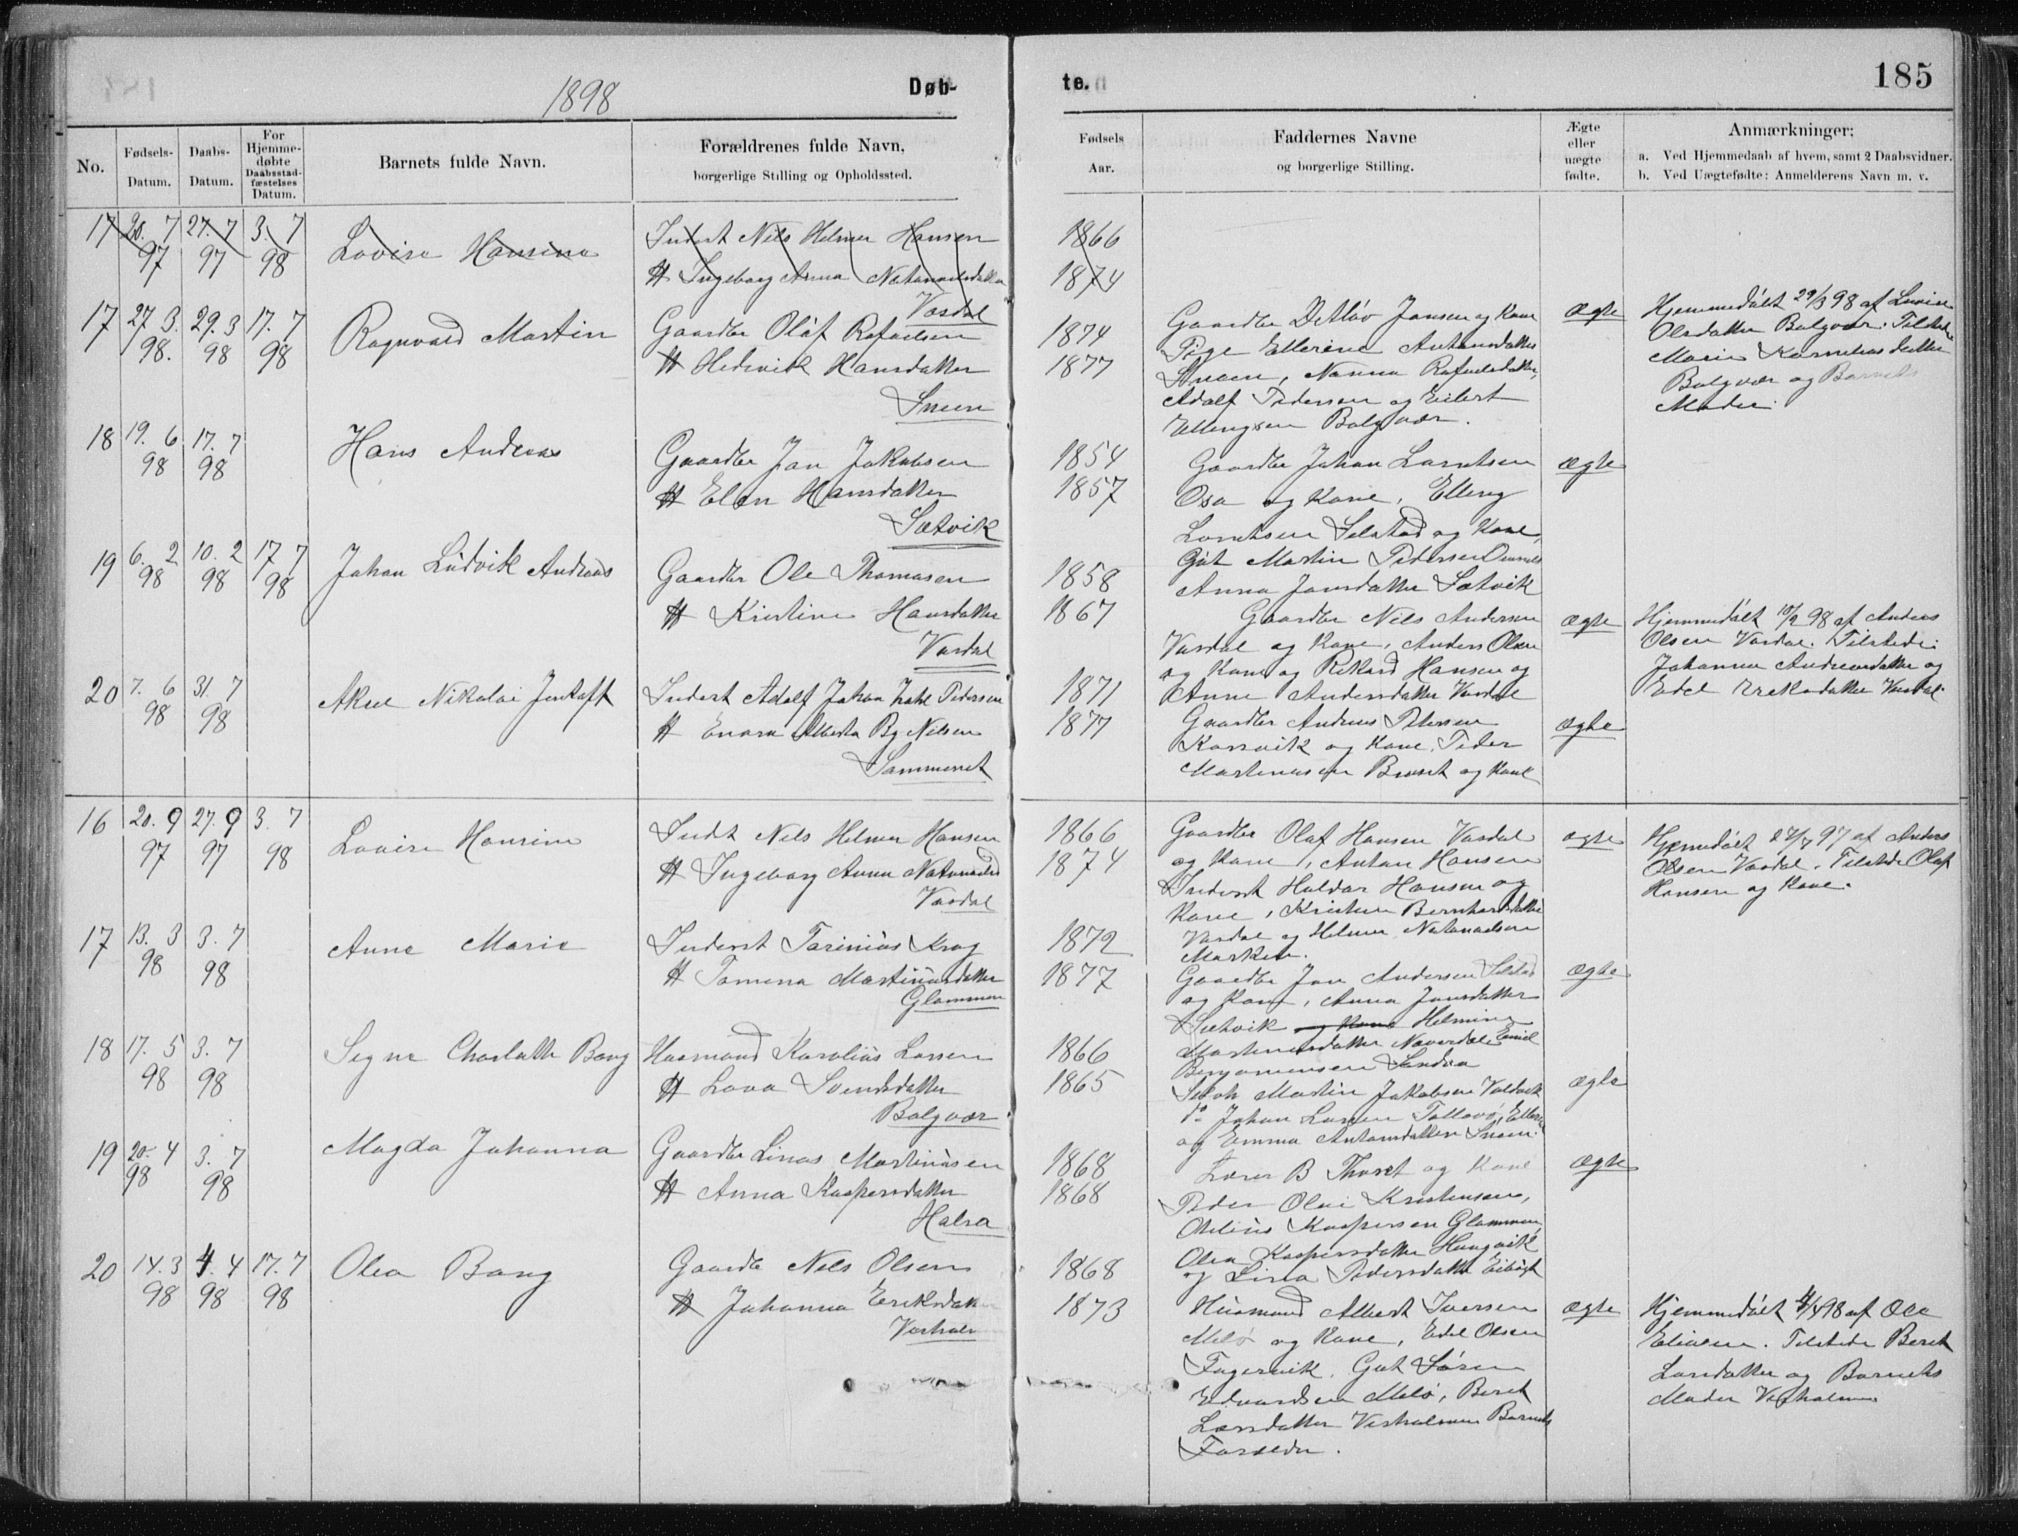 1898
Døb-
te.
185
No.
Fødsels-
Datum.
Daabs-
Datum.
For
Hjemme-
døbte
Daabsstad-
fæstelses
Datum.
Barnets fulde Navn.
Forældrenes fulde Navn,
borgerlige Stilling og Opholdssted.
Fødsels
Aar.
Faddernes Navne
og borgerlige Stilling.
Ægte
eller
uægte
fødte.
Anmærkninger:
a. Ved Hjemmedaab af hvem, samt 2 Daabsvidner.
b. Ved Uægtefødte: Anmelderens Navn m. v.
17 20. 7 27. 7 3. 7 Lovise Hansine Inderst Nils Helmer Hansen 1866
97 97 98 H Ingeborg Anna 1874
Vasdal
17 27. 3. 29. 3 17. 7 Ragnvald Martin Gaardbr Olaf Rafaelsen 1874
98. 98 98 H Hedevik Hansdatter 1877
Sneen
Gaardbr Detløv Jansen og Kone
Pige Ellerine Antonsdatter
Nanna Rafaelsdatter,
Adolf Pedersen og Eilert
Ellingsen Bolgvær.
ægte
Hjemmedøbt 29/3 98 af Lovise
Olsdatter Bolgvær. Tilstede
Marie Korneliusdatter
Bolgvær og Barnets
Moder.
18 19. 6 17. 7 Hans Andreas Gaardbr Jan Jakobsen 1854
98 98 H Elen Hansdatter 1857
Sætvik
Gaardbr Johan Lorntsen
Osa og Kone, Elling
Lorntsen Selstad og Kone,
Gut Martin Pedersen
Anna Jansdatter Sætvik
ægte
19 6. 2 10. 2 17 7 Johan Ludvik Andreas Gaardbr Ole Thomasen 1858
98 98 98 H Kristine Hansdatter 1867
Vasdal
Gaardbr Nils Andersen
Vasdal og Kone, Anders Olsen
og Kone og Rikard Hansen og
Anne Andersdatter Vasdal
ægte
Hjemmedøbt 10/2 98 af Anders
Olsen Vasdal. Tilstede:
Johanna Andreasdatter og
Edel Eriksdatter Vasdal.
20 7. 6 31. 7 Aksel Nikolai Jentoft Inderst Adolf Johan Zahl Pedersen 1871
98 98 H Enora Alberta By Nilsen 1877
Sommerset
Gaardbr Andreas Petersen
Korsvik og Kone, Peder
Martinussen Bruset og Kone
ægte
16 20. 9 27. 9 3. 7 Lovise Hansine Indt Nils Helmer Hansen 1866
97 97 98 H Ingeborg Anna 1874
Vasdal
Gaardbr Olaf Hansen Vasdal
og Kone, Anton Hansen
Inderst Haldor Hansen og
Kone, Kristine Bernhardsdatter
Vasdal og Helmer Natanaelsen
Marken.
ægte
Hjemmedøbt 27/7 97 af Anders
Olsen Vasdal. Tilstede Olaf
Hansen og Kone.
17 13. 3 3. 7 Anne Marie Inderst Torinius Krog 1872
98 98 H Tomina Martinusdatter 1877
Glommen
Gaardbr Jan Andersen Selstad
og Kone, Anna Jansdatter
Sætvik og Kone Helmine
Martinusdatter Naverdal Emil
Benjaminsen Sandaa
ægte
18 17. 5 3. 7 Signe Charlotte Bang Husmand Karolius Larsen 1866
98 98 H Lova Svendsdatter 1865
Bolgvær
Martin Jakobsen Valdvik
do Johan Larsen
og Emma Antonsdatter Sneen.
ægte
19 20. 4 3. 7 Magda Johanna Gaardbr Linas Martinusen 1868
98 98 H Anna Kaspersdatter 1868
Halsa
Lærer B Thoset og Kone
Peder Olai Kristensen,
Kaspersen Glommen,
Olea Kaspersdatter Haugvik
og Lina Pedersdatter
ægte
20 14. 3 4. 4 17. 7 Olea Bang Gaardbr Nils Olsen 1868
98 98 98 H Johanna Eriksdatter 1873
Husmand Albert Iversen
Melø og Kone, Edel Olsen
Fagervik, Gut Søren
Edvardsen Melø, Beret
Larsdatter Vesholmen Barnets
Forældre.
ægte
Hjemmedøbt 4/4 98 af Ole
Eliasen. Tilstede Beret
Larsdatter og Barnets
Moder